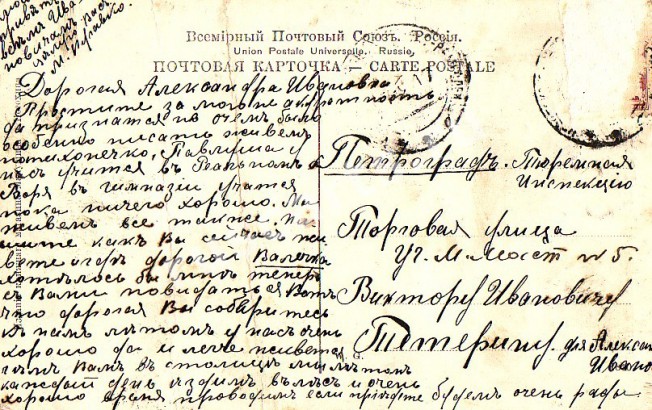 Всемірный Почтовый Союзъ. Россія.
Union Postale Universelle. Russie.
ПОЧТОВАЯ КАРТОЧКА — CARTE POSTALE
Дорогая Александра Ивановна
Простите за мою не акуратность
да признатся не очемъ было
особенно писать живемъ
потихонечку, Павлуша у
насъ учится въ Реальномъ а
Боря въ гимназіи учатся
пока ничего хорошо. Мы
живемъ все также. Пи
шите какъ Вы сейчасъ жи
вете
дорогой Валечка
хотѣлось бы мнѣ теперь
съ Вами повидаться Вотъ
что дорогая Вы соберитесь
къ намъ лѣтомъ у насъ очень
хорошо да и легче живется
чѣмъ Вамъ въ столицѣ мы лѣтомъ
каждый день ѣздимъ въ лѣсъ и очень
хорошо время проводимъ если пріѣдете будемъ очень рады
Петроградъ. Тюремная
Инспекцію
Торговая улица
уг. М. Мост №5.
Виктору Ивановичу
Тетерину для Алексан
Ивано